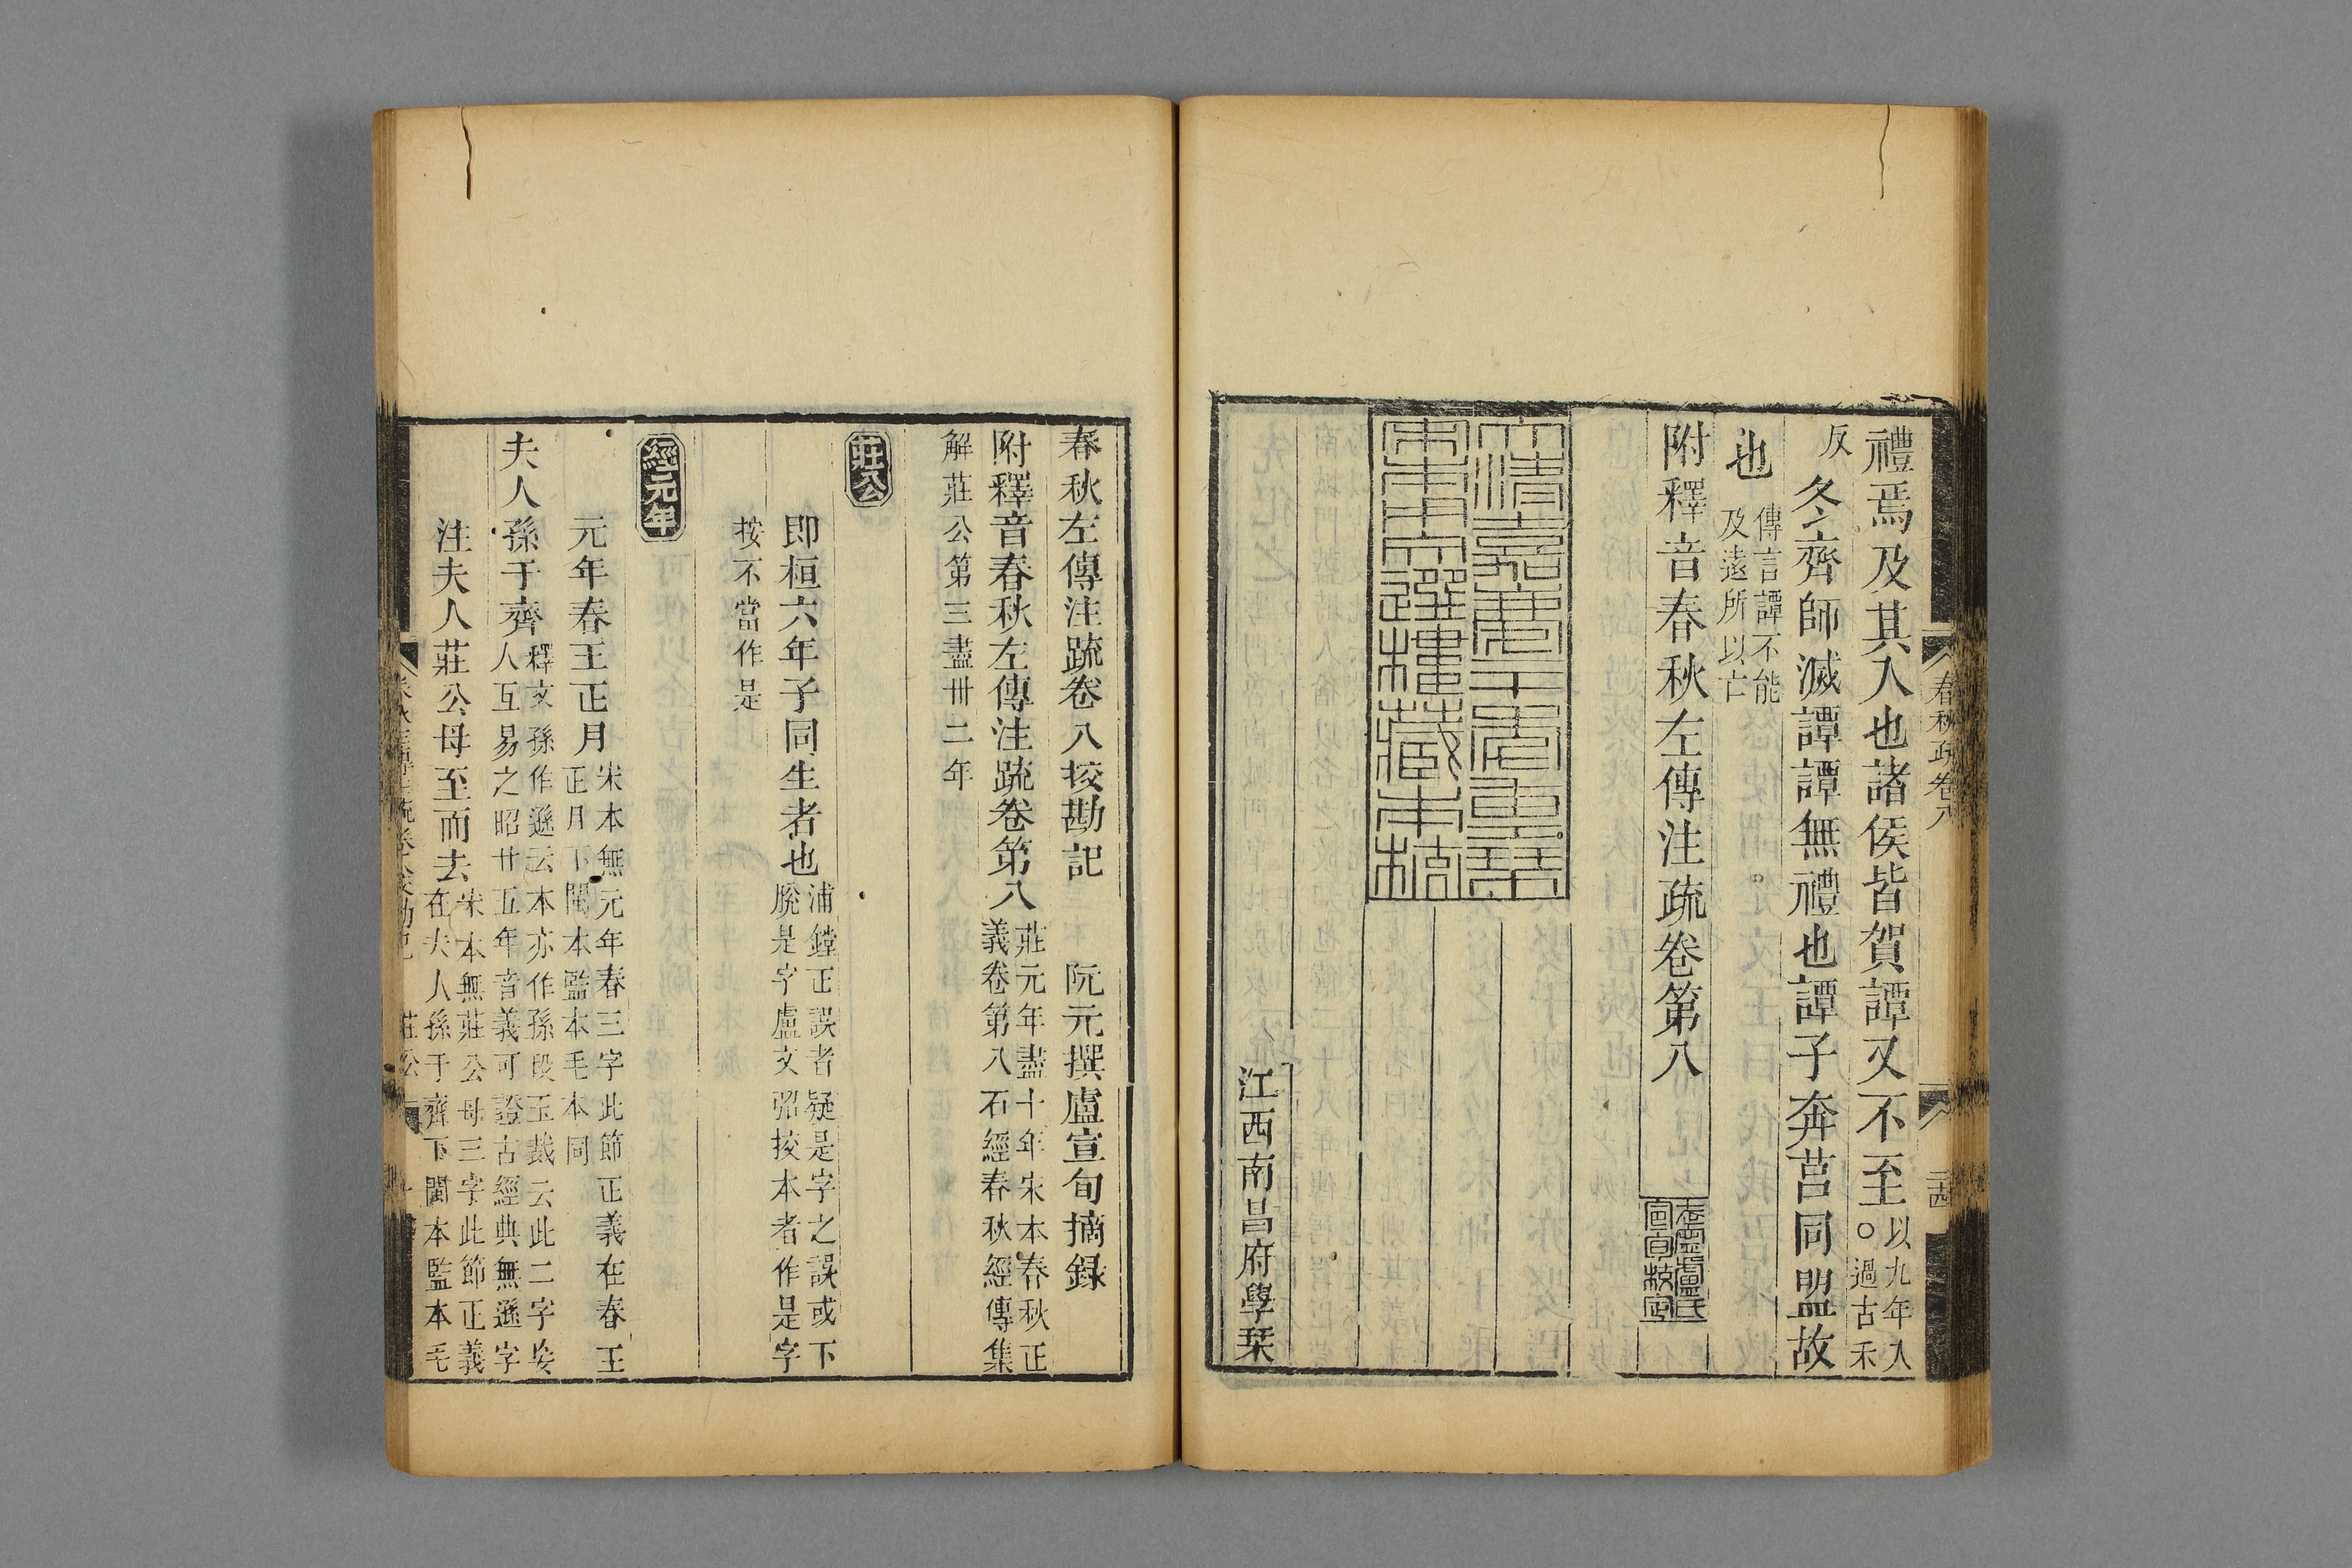 春秋疏卷八
二十四
禮焉及其入也諸侯皆賀譚又不至以九年入○過古禾
反冬齊師滅譚譚無禮也譚子奔莒同盟故
也傳言譚不能及遠所以亡
附釋音春秋左傳注疏卷第八
盧氏宣旬校定
大清嘉慶二十年重栞
宋本用文選樓藏本校
江西南昌府學栞
春秋左傳注疏卷八挍勘記 阮元撰盧宣旬摘録
附釋音春秋左傳注疏卷第八莊元年盡十年宋本春秋正義卷第八石經春秋經傳集
解莊公第三盡卅二年
莊公
即桓六年子同生者也浦鏜正誤者疑是字之誤或下脫是字盧文弨挍本者作是字
按不當作是
經元年
元年春王正月宋本無元年春三字此節正義在春王正月下閩本監本毛本同
夫人孫于齊釋文孫作遜云本亦作孫段玉裁云此二字妄人互易之昭廿五年音義可證古經典無遜字
注夫人莊公母至而去宋本無莊公母三字此節正義在夫人孫于齊下閩本監本毛